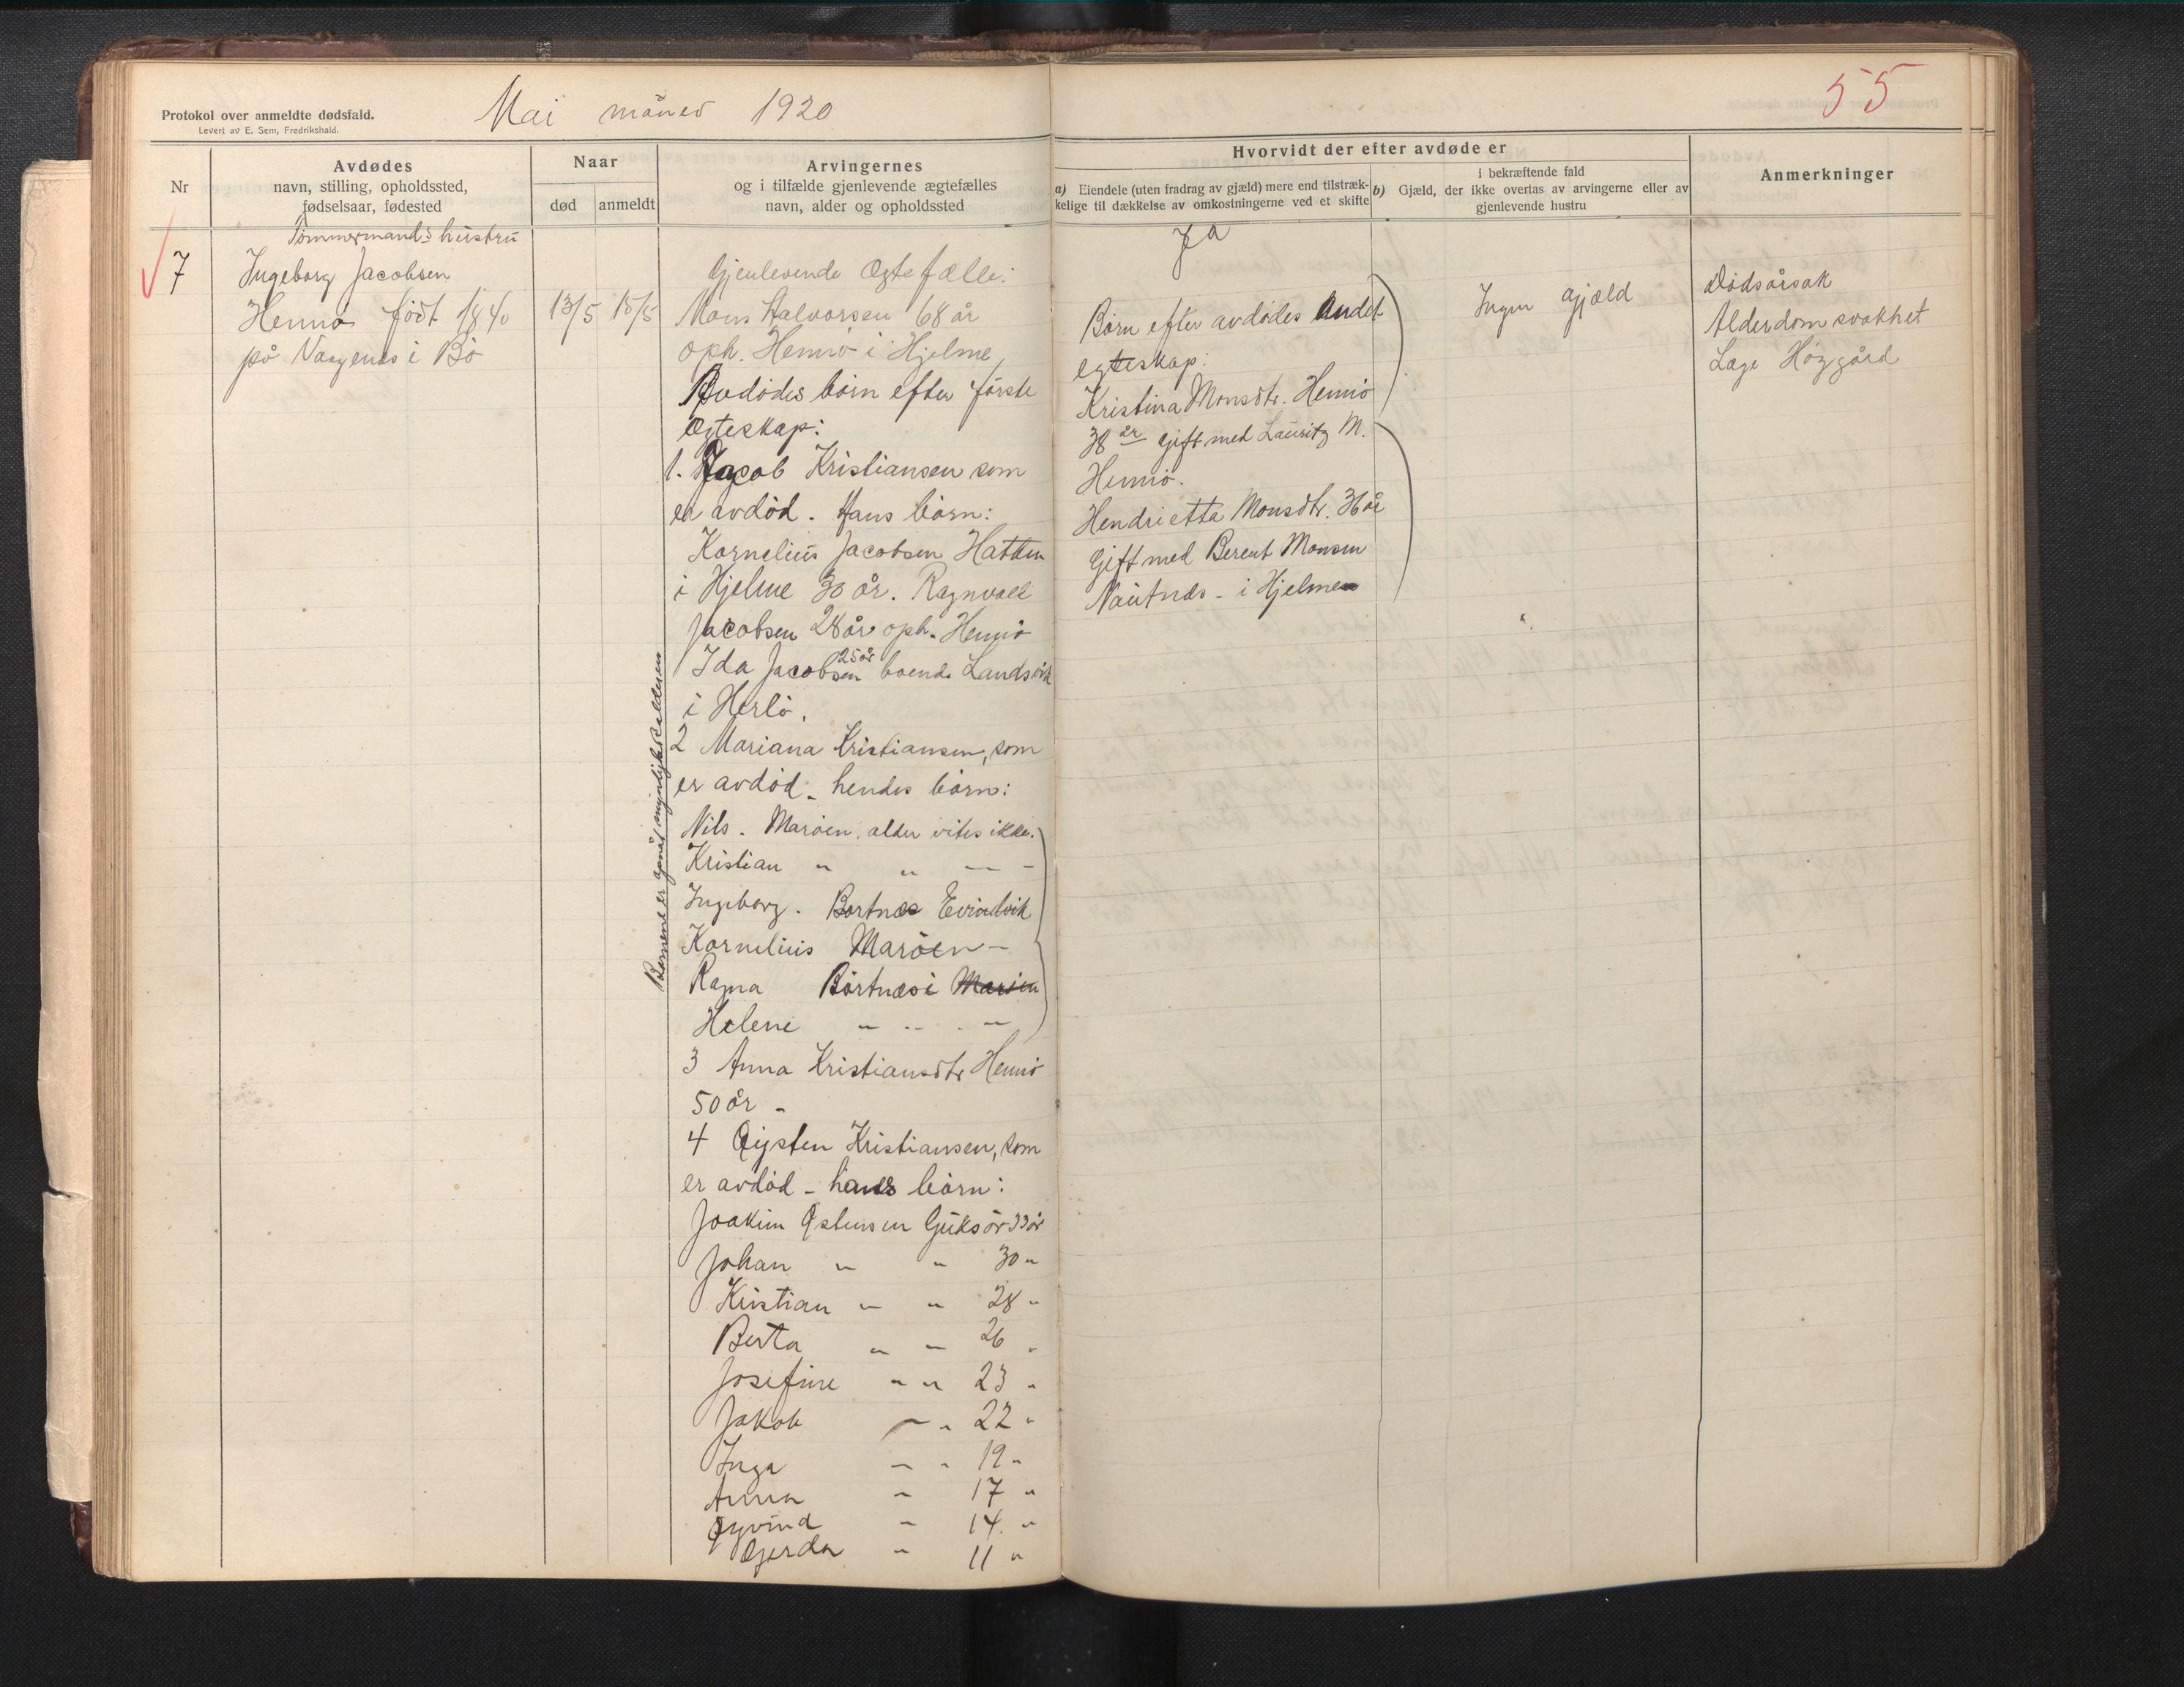 55
Protokol over anmeldte dødsfald.
Levert av E. Sem, Fredrikshald.
Mai måned 1920
Nr
Avdødes
navn, stilling, opholdssted,
fødselsaar, fødested
Naar
død
anmeldt
Arvingernes
og i tilfælde gjenlevende ægtefælles
navn, alder og opholdssted
Hvorvidt der efter avdøde er
a) Eiendele (uten fradrag av gjæld) mere end tilstræk-
kelige til dækkelse av omkostningerne ved et skifte
i bekræftende fald
b) Gjæld, der ikke overtas av arvingerne eller av
gjenlevende hustru
Anmerkninger
7
Tømmermands hustru
Ingeborg Jacobsen
Hennø født 1840
på Vaagenes i Bö
13/5
15/5
Gjenlevende Ægtefælle:
Mons Halvorsen 68 år
oph. Hennö i Hjelme
Avdödes börn efter förste
Ægteskap:
1. Jacob Kristiansen som
er avdöd. Hans börn:
Kornelius Jacobsen Hatten
i Hjelme 30 år. Ragnvald
Jacobsen 28 år oph. Hennö
Ida Jacobsen 25 år boende Landsvik
i Herlö.
2 Mariana Kristiansen, som
er avdöd - hendes börn:
Nils - Maröen, alder vites ikke.
Kristian " " — -
Ingeborg. Bortnæs Evindvik
Kornelius Maröen -
Ragna Börtnæs i Maröen
Helene " " . "
3 Anna Kristiansdtr Hennö
50 år -
4 Öysten Kristiansen, som
er avdöd - hans börn:
Joakim Östensen Guksör 33 år
Johan " " 30 "
Kristian " " 28 "
Berta " " 26 "
Josefine " " 23 "
Jakob " " 22 "
Inga " " 19 "
Anna " 17 "
Öyvind " 14. "
Gjerda " 11 "
Børnene er opnåt myndighedsalderen
Ja
Börn efter avdödes Andet
egteskap:
Kristina Monsdtr. Hennö
38 år gift med Lauritz M.
Hennö.
Hendrietta Monsdtr. 36 år
Gift med Berent Monsen
Nautnes - i Hjelme
Ingen gjæld
Dödsårsak
Alderdomsvakhet
Læge Höygård